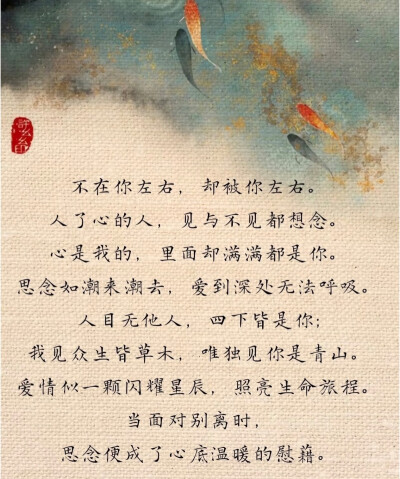 不在你左右，却被你左右。
人了心的人，见与不见都想念。
心是我的，里面却满满都是你。
思念如潮来潮去，爱到深处无法呼吸。
人目无他人，四下皆是你；
我见众生皆草木，唯独见你是青山。
爱情似一颗闪耀星辰，照亮生命旅程。
当面对别离时，
思念便成了心底温暖的慰藉。